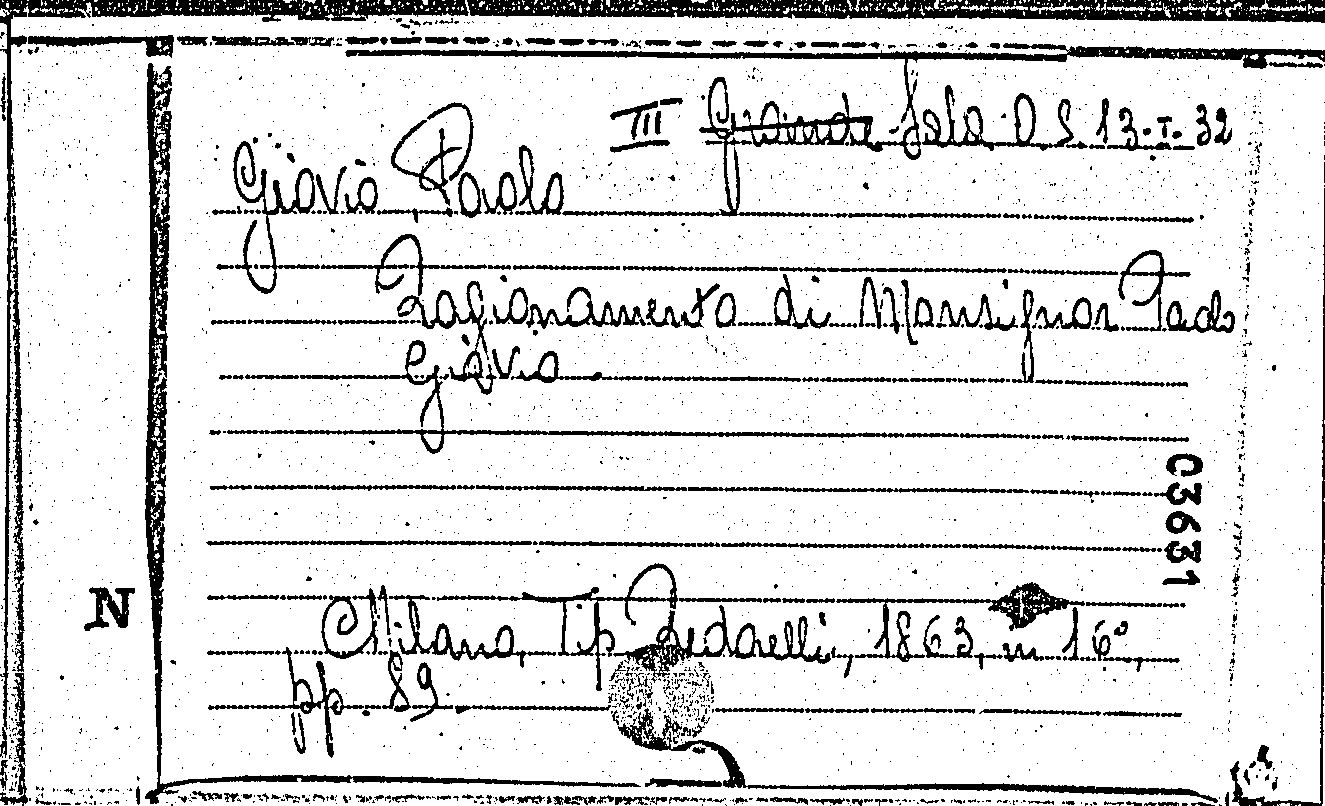 III Grande Sala O S. 13-I-32
Giovio Paolo
Ragionamento di Monsignor Paolo
Giovio.
03631
N
Milano, Tip. Redaelli, 1863, in 16°,
pp. 89.